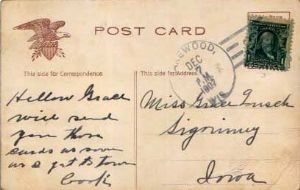 POST CARD
This side for Correspondence
This side is for Address
WOOD,
DEC
7
1907
Hellow Grace
will send
you those
cards as soon
as I get to town
Miss Grace
Sigourney
Iowa